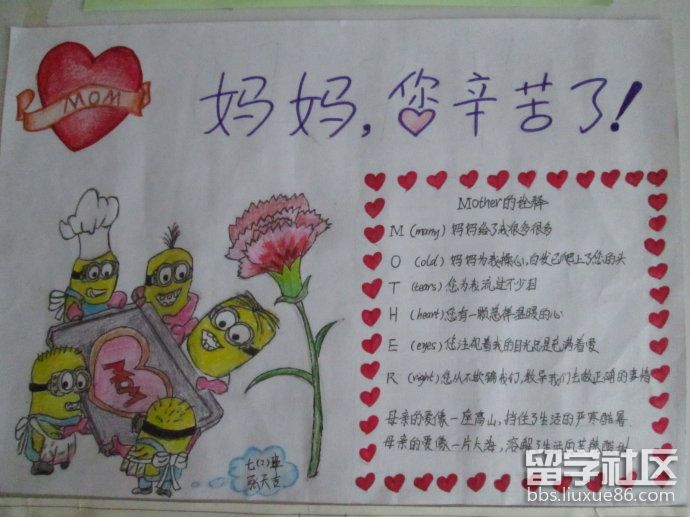 MOM
妈妈,您辛苦了!
Mother的诠释
M (many) 妈妈给了我很多很多
O (old) 妈妈为我操心,白发已爬上了您的头
T (tears) 您为我流过不少泪
H (heart) 您有一颗慈祥温暖的心
E (eyes) 您注视着我的目光总是充满着爱
R (right) 您从不欺骗我们,教导我们去做正确的事情
母亲的爱像一座高山,挡住了生活的严寒酷暑.
母亲的爱像一片大海,溶解了生活的苦
MOM
七(2)班
天吉
留学社区
bbs.liuxue86.com